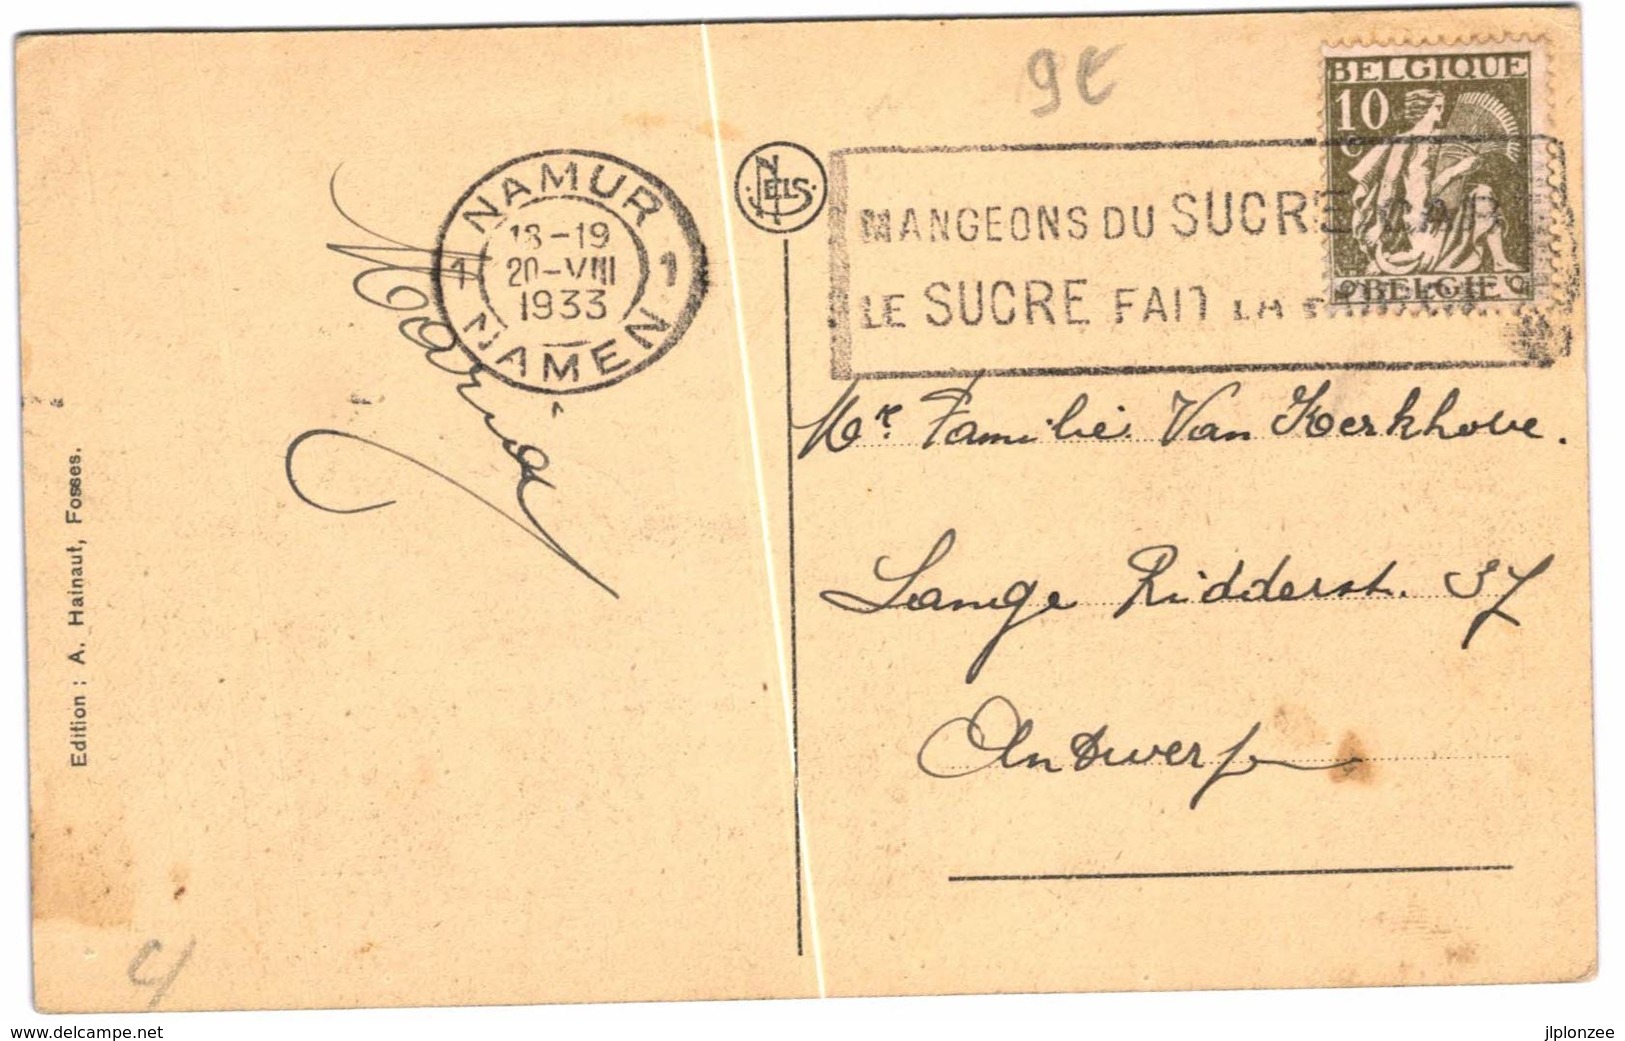 9€
BELGIQUE
10
C
BELGIE
NAMUR
1 1
18-19
20-VIII
1933
NAMEN
NELS
MANGEONS DU SUCRE CAR
LE SUCRE FAIT LA
Maria
Mr. Familie Van Kerkhove.
Lange Ridderst. 37
Antwerpen
Edition : A. Hainaut, Fosses.
www.delcampe.net
jlplonzee